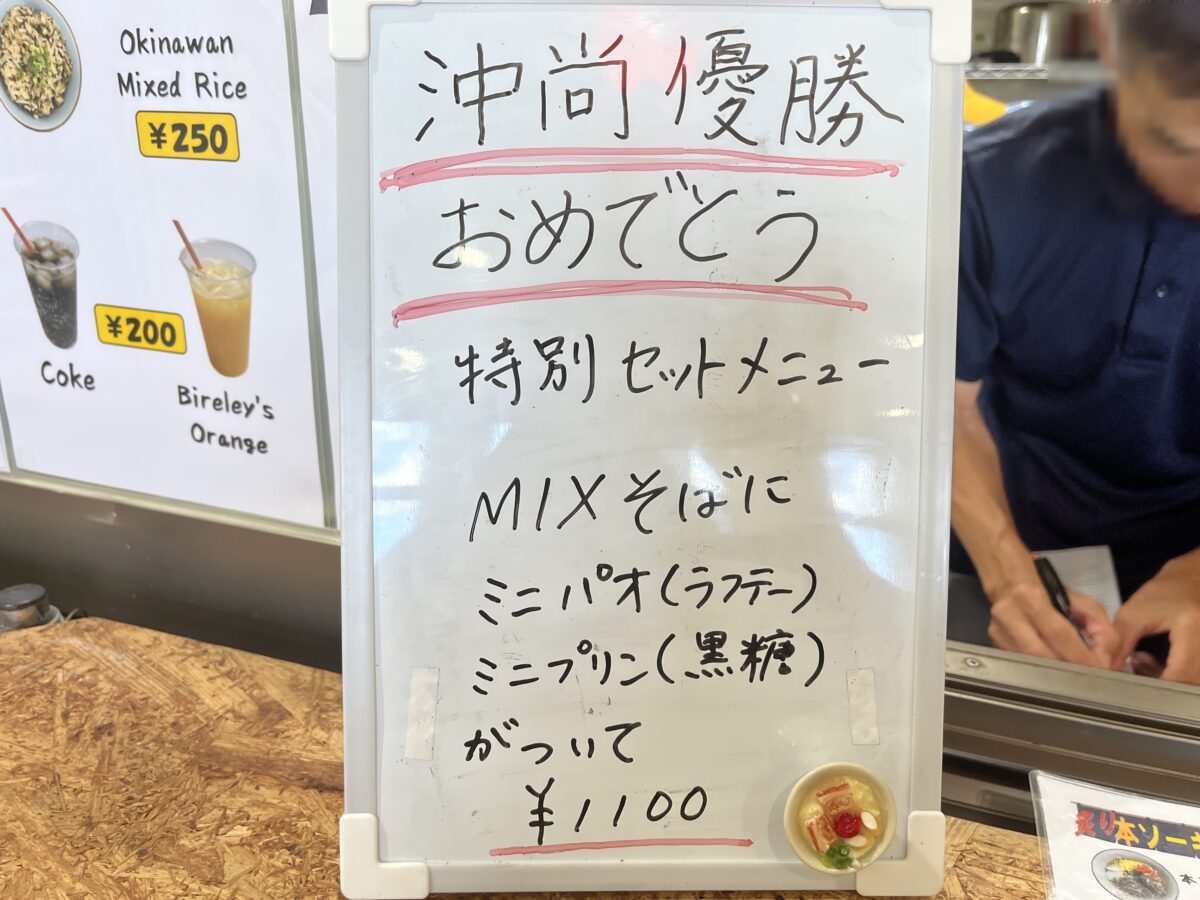 Okinawan
Mixed Rice
¥250
¥200
Coke
Bireley's
Orange
沖尚優勝
おめでとう
特別セットメニュー
MIXそばに
ミニパオ(ラフテー)
ミニプリン(黒糖)
がついて
¥1100
炙り本ソーキ
本